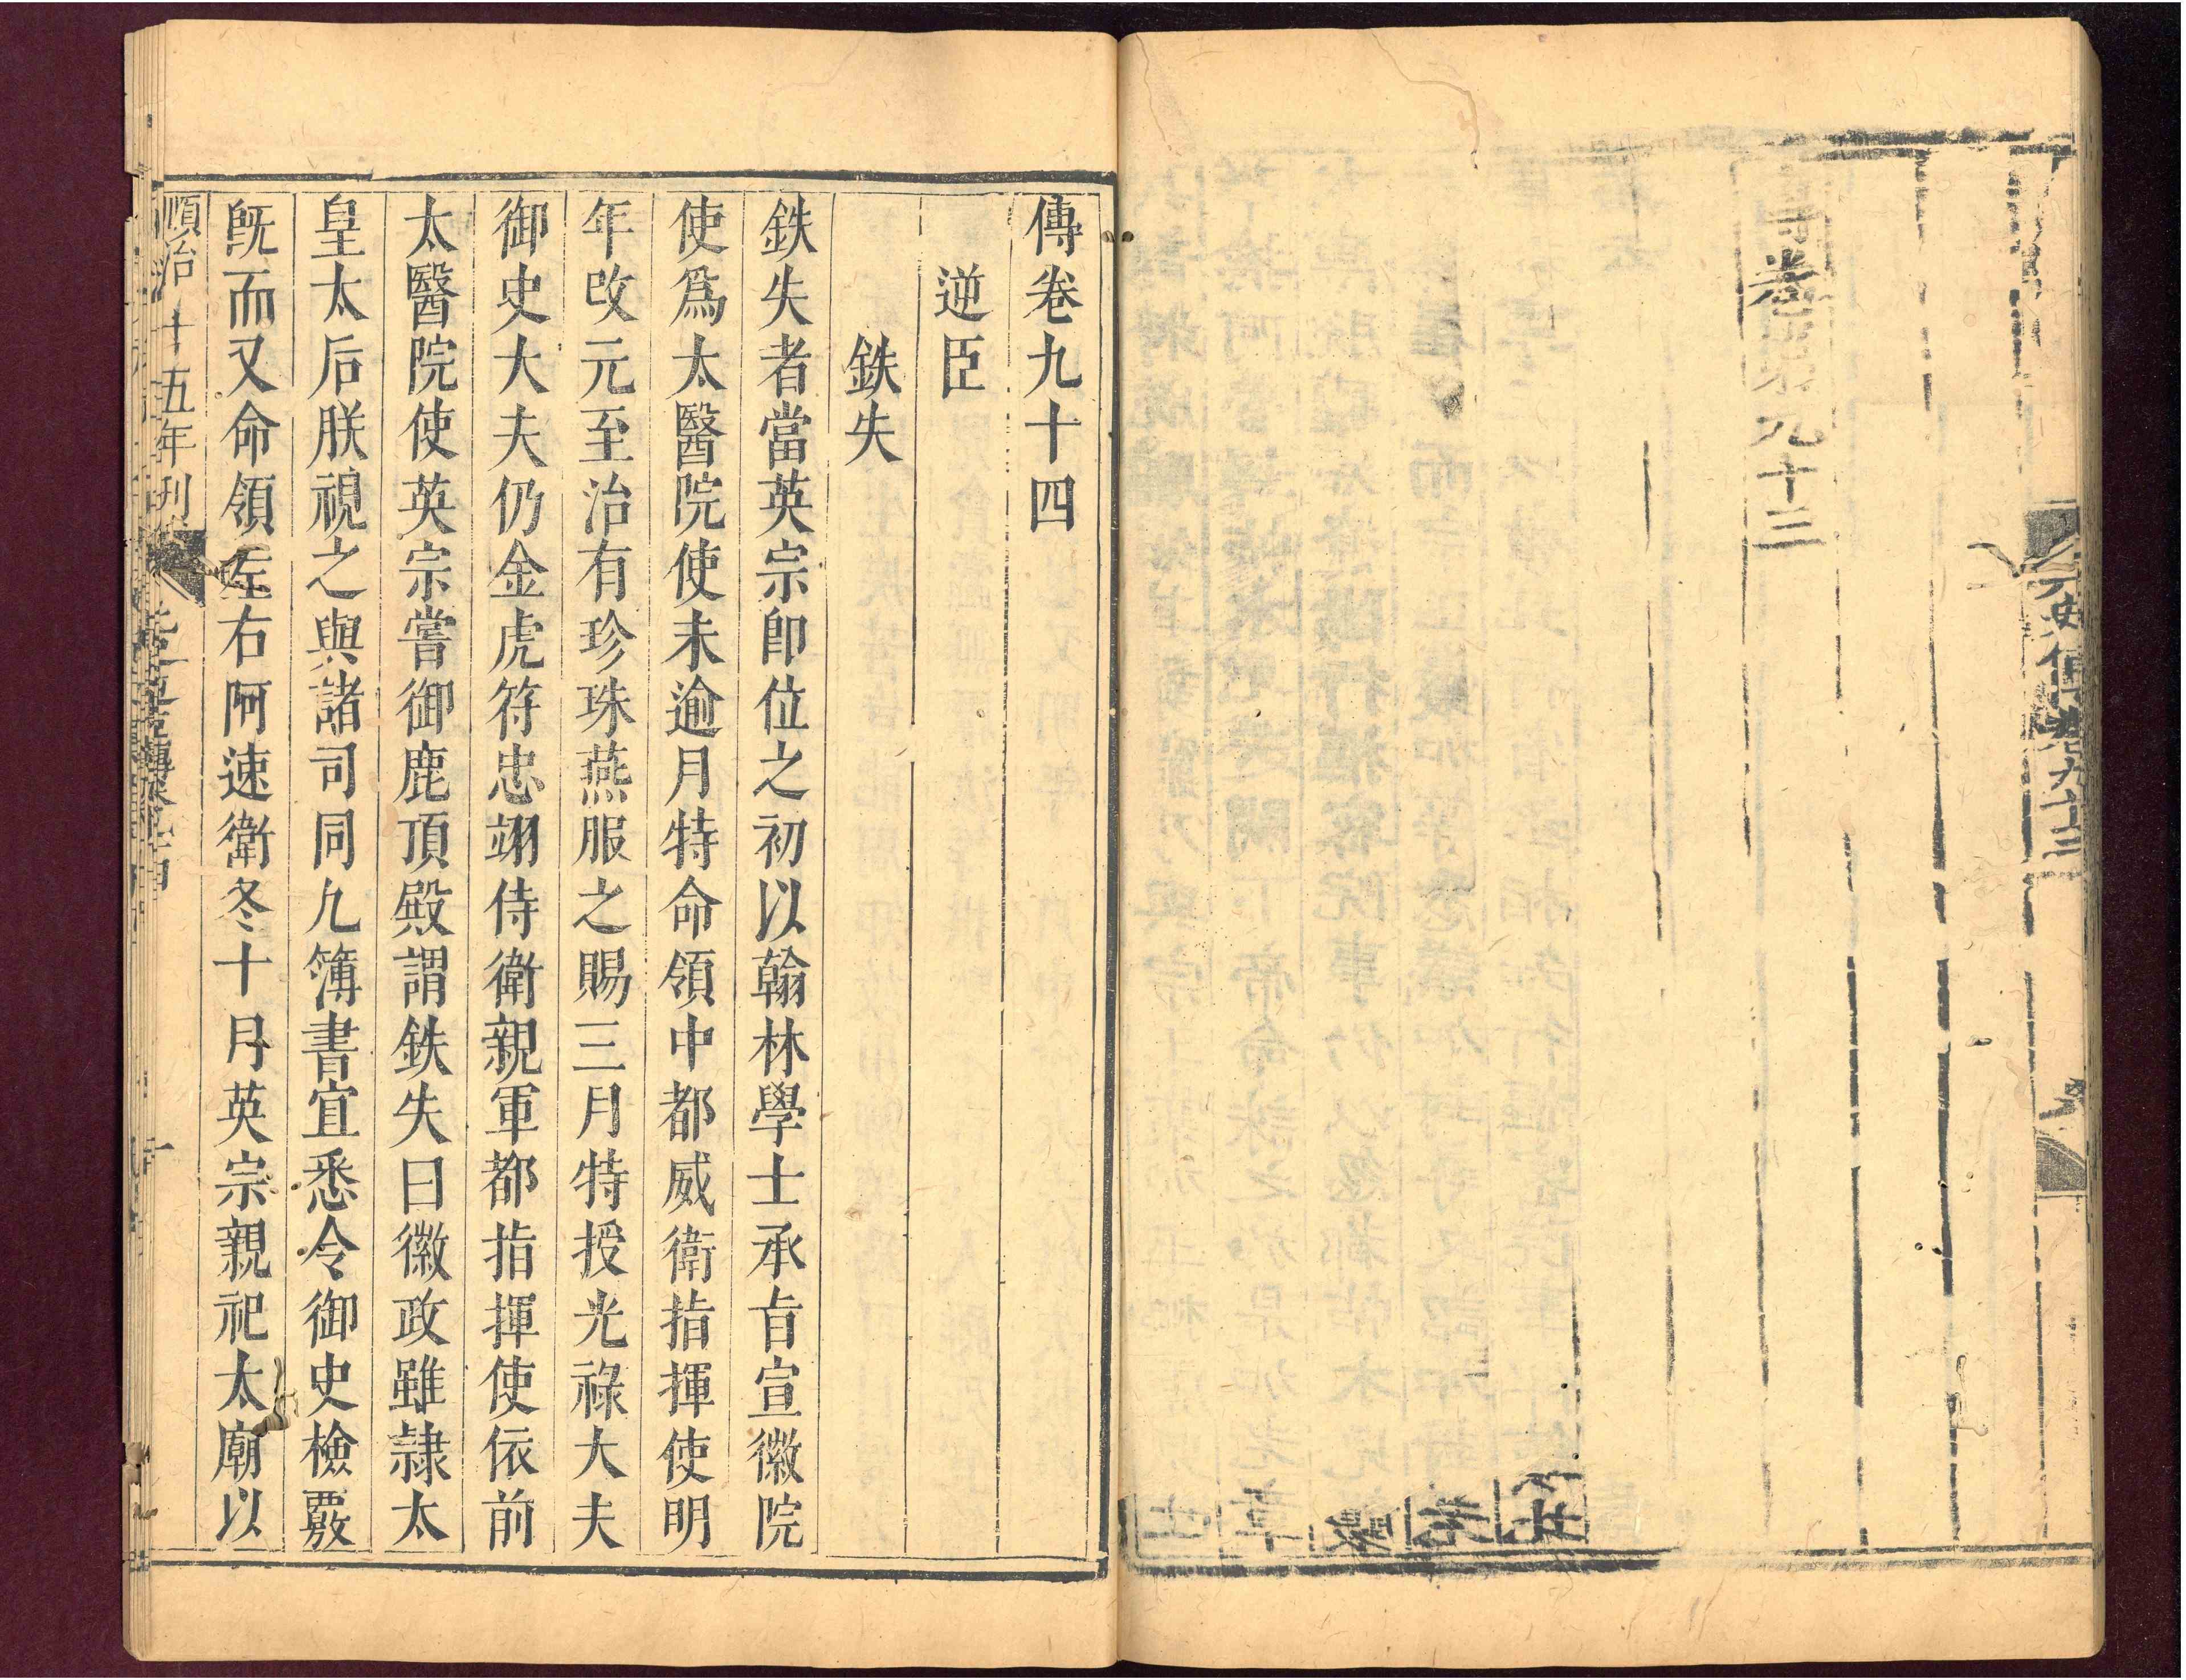 元史傳卷九十三
卷 九十三
傳卷九十四
逆臣
鉄失
鉄失者當英宗卽位之初以翰林學士承旨宣徽院
使爲太醫院使未逾月特命領中都威衛指揮使明
年改元至治有珍珠燕服之賜三月特授光祿大夫
御史大夫仍金虎符忠翊侍衛親軍都指揮使依前
太醫院使英宗嘗御鹿頂殿謂鉄失曰徽政雖隷太
皇太后朕視之與諸司同凢簿書宜悉令御史檢覈
旣而又命領左右阿速衛冬十月英宗親祀太廟以
順治十五年刊